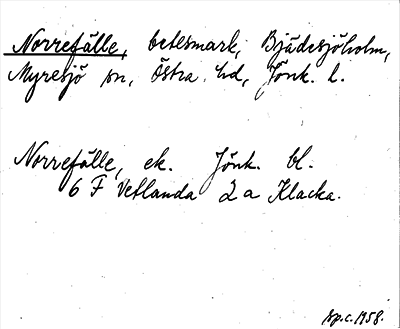 Norrefälle, betesmark, Bjädesjöholm,
Myresjö sn, Östra hd, Jönk. l.
Norrefälle, ek. Jönk. bl.
6 F Vetlanda 2 a Klacka.
sp.c. 1958.